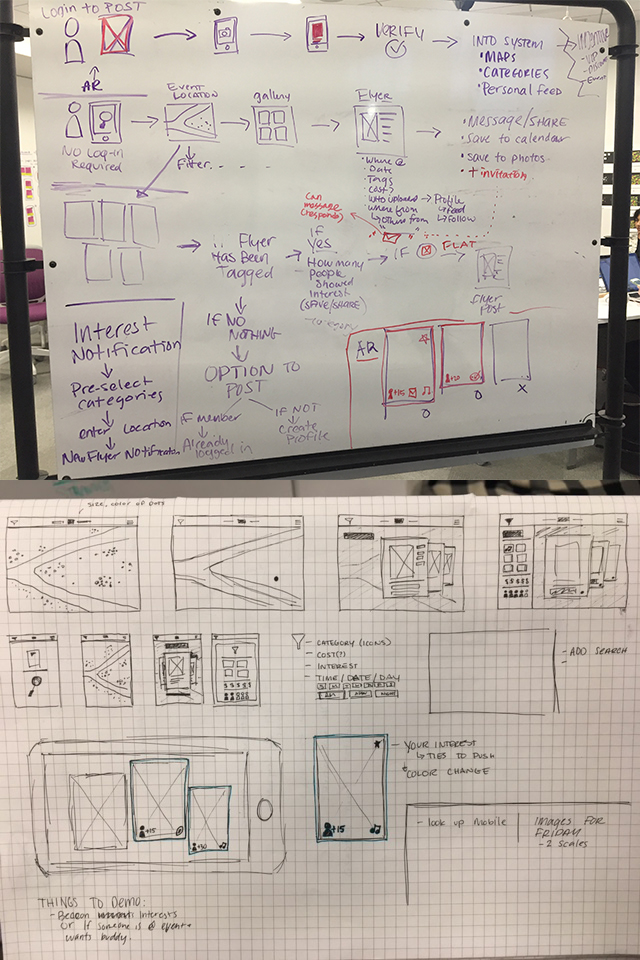 Login to POST
VERIFY
INTO SYSTEM
• MAPS
• CATEGORIES
• Personal feed
INCENTIVE
- VIP
AR
NO LOG-IN
Required
EVENT
LOCATION
Filter. . .
gallery
FLYER
• Where @
• Date
• Tags
• Cost?
• Who uploaded → Profile
• Where from ↳ Feed
↳ Others from ↳ Follow
• Message/SHARE
• Save to calendar
• save to photos
• + invitation
Can
message
(responds)
Flyer
HAS BEEN
TAGGED
IF
YES
How many
People
Showed
Interest
(SAVE/SHARE)
IF
FLAT
flyer
Post
IF NO
NOTHING
OPTION TO
POST
IF member
Already
logged in
IF NOT
Create
Profile
Interest
Notification
Pre-select
categories
enter Location
New Flyer Notification
AR
+15
+20
O
O
X
size, color of dots
- CATEGORY (ICONS)
- COST(?)
- INTEREST
- TIME/DATE/DAY
- ADD SEARCH
- YOUR INTEREST
↳ TIES TO PUSH
* COLOR CHANGE
+15
+30
+15
- look up Mobile
Images FOR
FRIDAY
- 2 scales
THINGS TO DEMO:
- Beacon Interests
or If someone is @ event +
wants buddy.